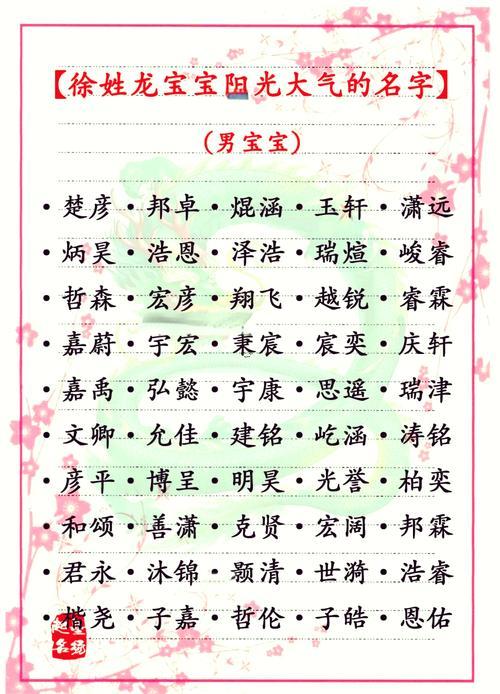 【徐姓龙宝宝阳光大气的名字】
(男宝宝)
·楚彦·邦卓·焜涵·玉轩·潇远
·炳昊·浩恩·泽浩·瑞煊·峻睿
·哲森·宏彦·翔飞·越锐·睿霖
·嘉蔚·宇宏·秉宸·宸奕·庆轩
·嘉禹·弘懿·宇康·思遥·瑞津
·文卿·允佳·建铭·屹涵·涛铭
·彦平·博呈·明昊·光誉·柏奕
·和颂·善潇·克贤·宏阔·邦霖
·君永·沐锦·颢清·世漪·浩睿
·楷尧·子嘉·哲伦·子皓·恩佑